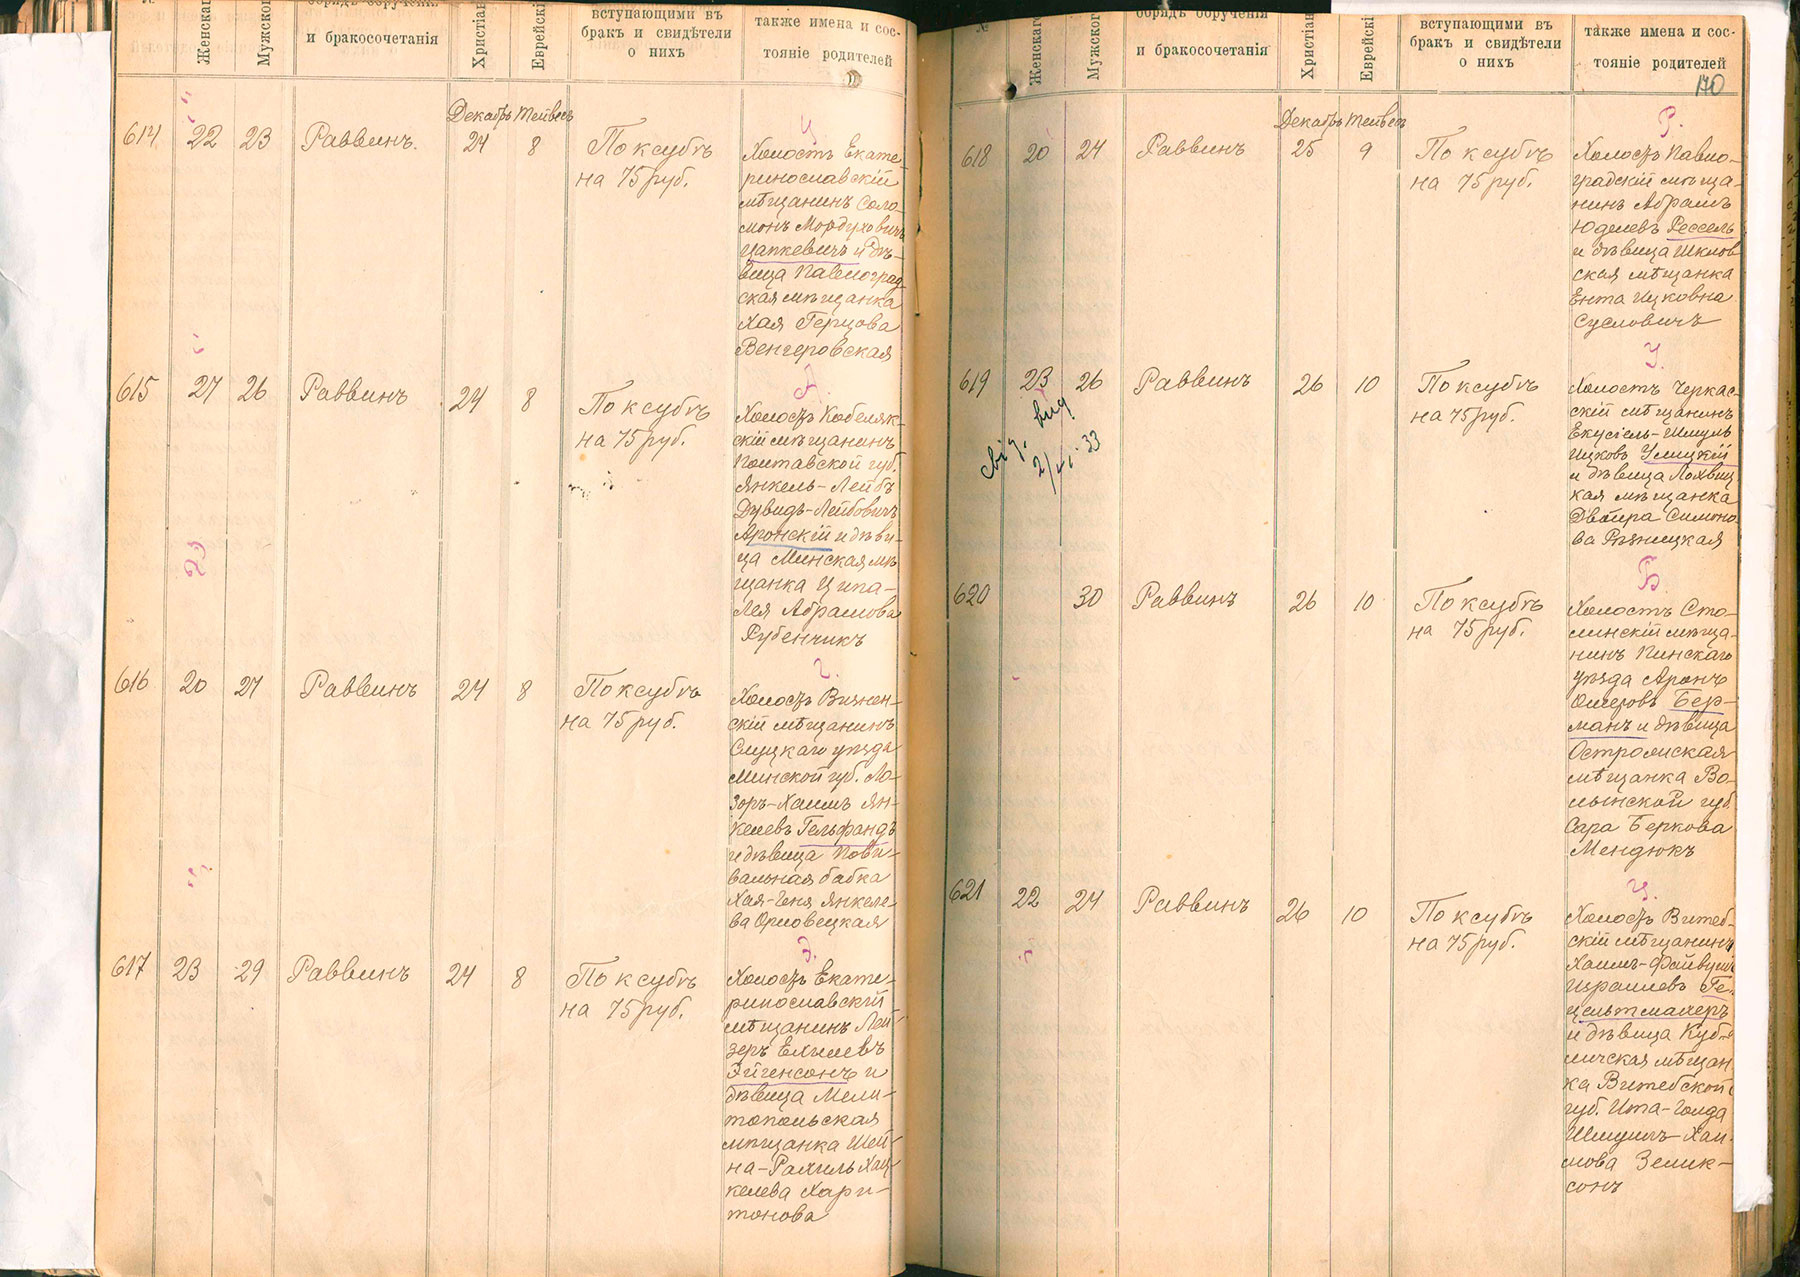 №
Женскаг
Мужског
обрядъ обрученія
и бракосочетанія
Христіан
Еврейскі
вступающими въ
бракъ и свидѣтели
о нихъ
также имена и сос-
тояніе родителей
Декабрь Тейвесъ
614 22 23 Раввинъ. 24 8 По ксубѣ
на 75 руб.
Ц
Холостъ Екате
ринославскій
мѣщанинъ Соло-
монъ Мордуховичъ
Цапкевичъ и дѣ-
вица Павлоград-
ская мѣщанка
Хая Герцова
Венгеровская
615 27 26 Раввинъ 24 8 По ксубѣ
на 75 руб.
А
Холостъ Кобеляк-
скій мѣщанинъ
Полтавской губ.
Янкель-Лейбъ
Дувидъ-Лейбовичъ
Аронскій и дѣви-
ца Минская мѣ
щанка Ципа-
Лея Абрамова
Рубенчикъ
616 20 27 Раввинъ 24 8 По ксубѣ
на 75 руб.
Г.
Холостъ Визнен-
скій мѣщанинъ
Слуцкаго уѣзда
Минской губ. Ла-
зоръ-Хаимъ Ян-
келевъ Гельфандъ
и дѣвица Пови-
вальная бабка
Хая-Геня Янкеле
ва Орловецкая
617 23 29 Раввинъ 24 8 По ксубѣ
на 75 руб.
Э.
Холостъ Екате-
ринославскій
мѣщанинъ Лей-
зеръ Ехилевъ
Эйгенсонъ и
дѣвица Мели-
топольская
мѣщанка Шей-
на-Рахиль Хац-
келева Хари-
тонова
№
Женскаг
Мужског
обрядъ обрученія
и бракосочетанія
Христіан
Еврейскі
вступающими въ
бракъ и свидѣтели
о нихъ
также имена и сос-
тояніе родителей
170
Декабрь Тейвесъ
618 20 24 Раввинъ 25 9 По ксубѣ
на 75 руб.
Р.
Холостъ Павло-
градскій мѣща-
нинъ Абрамъ
Юделевъ Рессель
и дѣвица Шклов
ская мѣщанка
Ента Ицковна
Сусловичъ
619 23 26 Раввинъ 26 10 По ксубѣ
на 75 руб.
свід. вид
2/VI-33
У.
Холостъ Черкас-
скій мѣщанинъ
Екусіель-Шмуль
Ицковъ Улицкій
и дѣвица Лохвиц
кая мѣщанка
Двойра Симоно-
ва Рѣзницкая
620 30 Раввинъ 26 10 По ксубѣ
на 75 руб.
Б
Холостъ Сто-
линскій мѣща-
нинъ Пинскаго
уѣзда Аронъ
Ошеровъ Бер-
манъ и дѣвица
Остропская
мѣщанка Во-
лынской губ
Сара Беркова
Мендюкъ
621 22 24 Раввинъ 26 10 По ксубѣ
на 75 руб.
Ц.
Холостъ Витеб-
скій мѣщанинъ
Хаимъ-Файвушъ
Израилевъ Ге-
цельтмахеръ
и дѣвица Куб-
личская мѣщан
ка Витебской
губ. Ита-Голда
Шмуилъ-Хаи-
мова Зелик-
сонъ